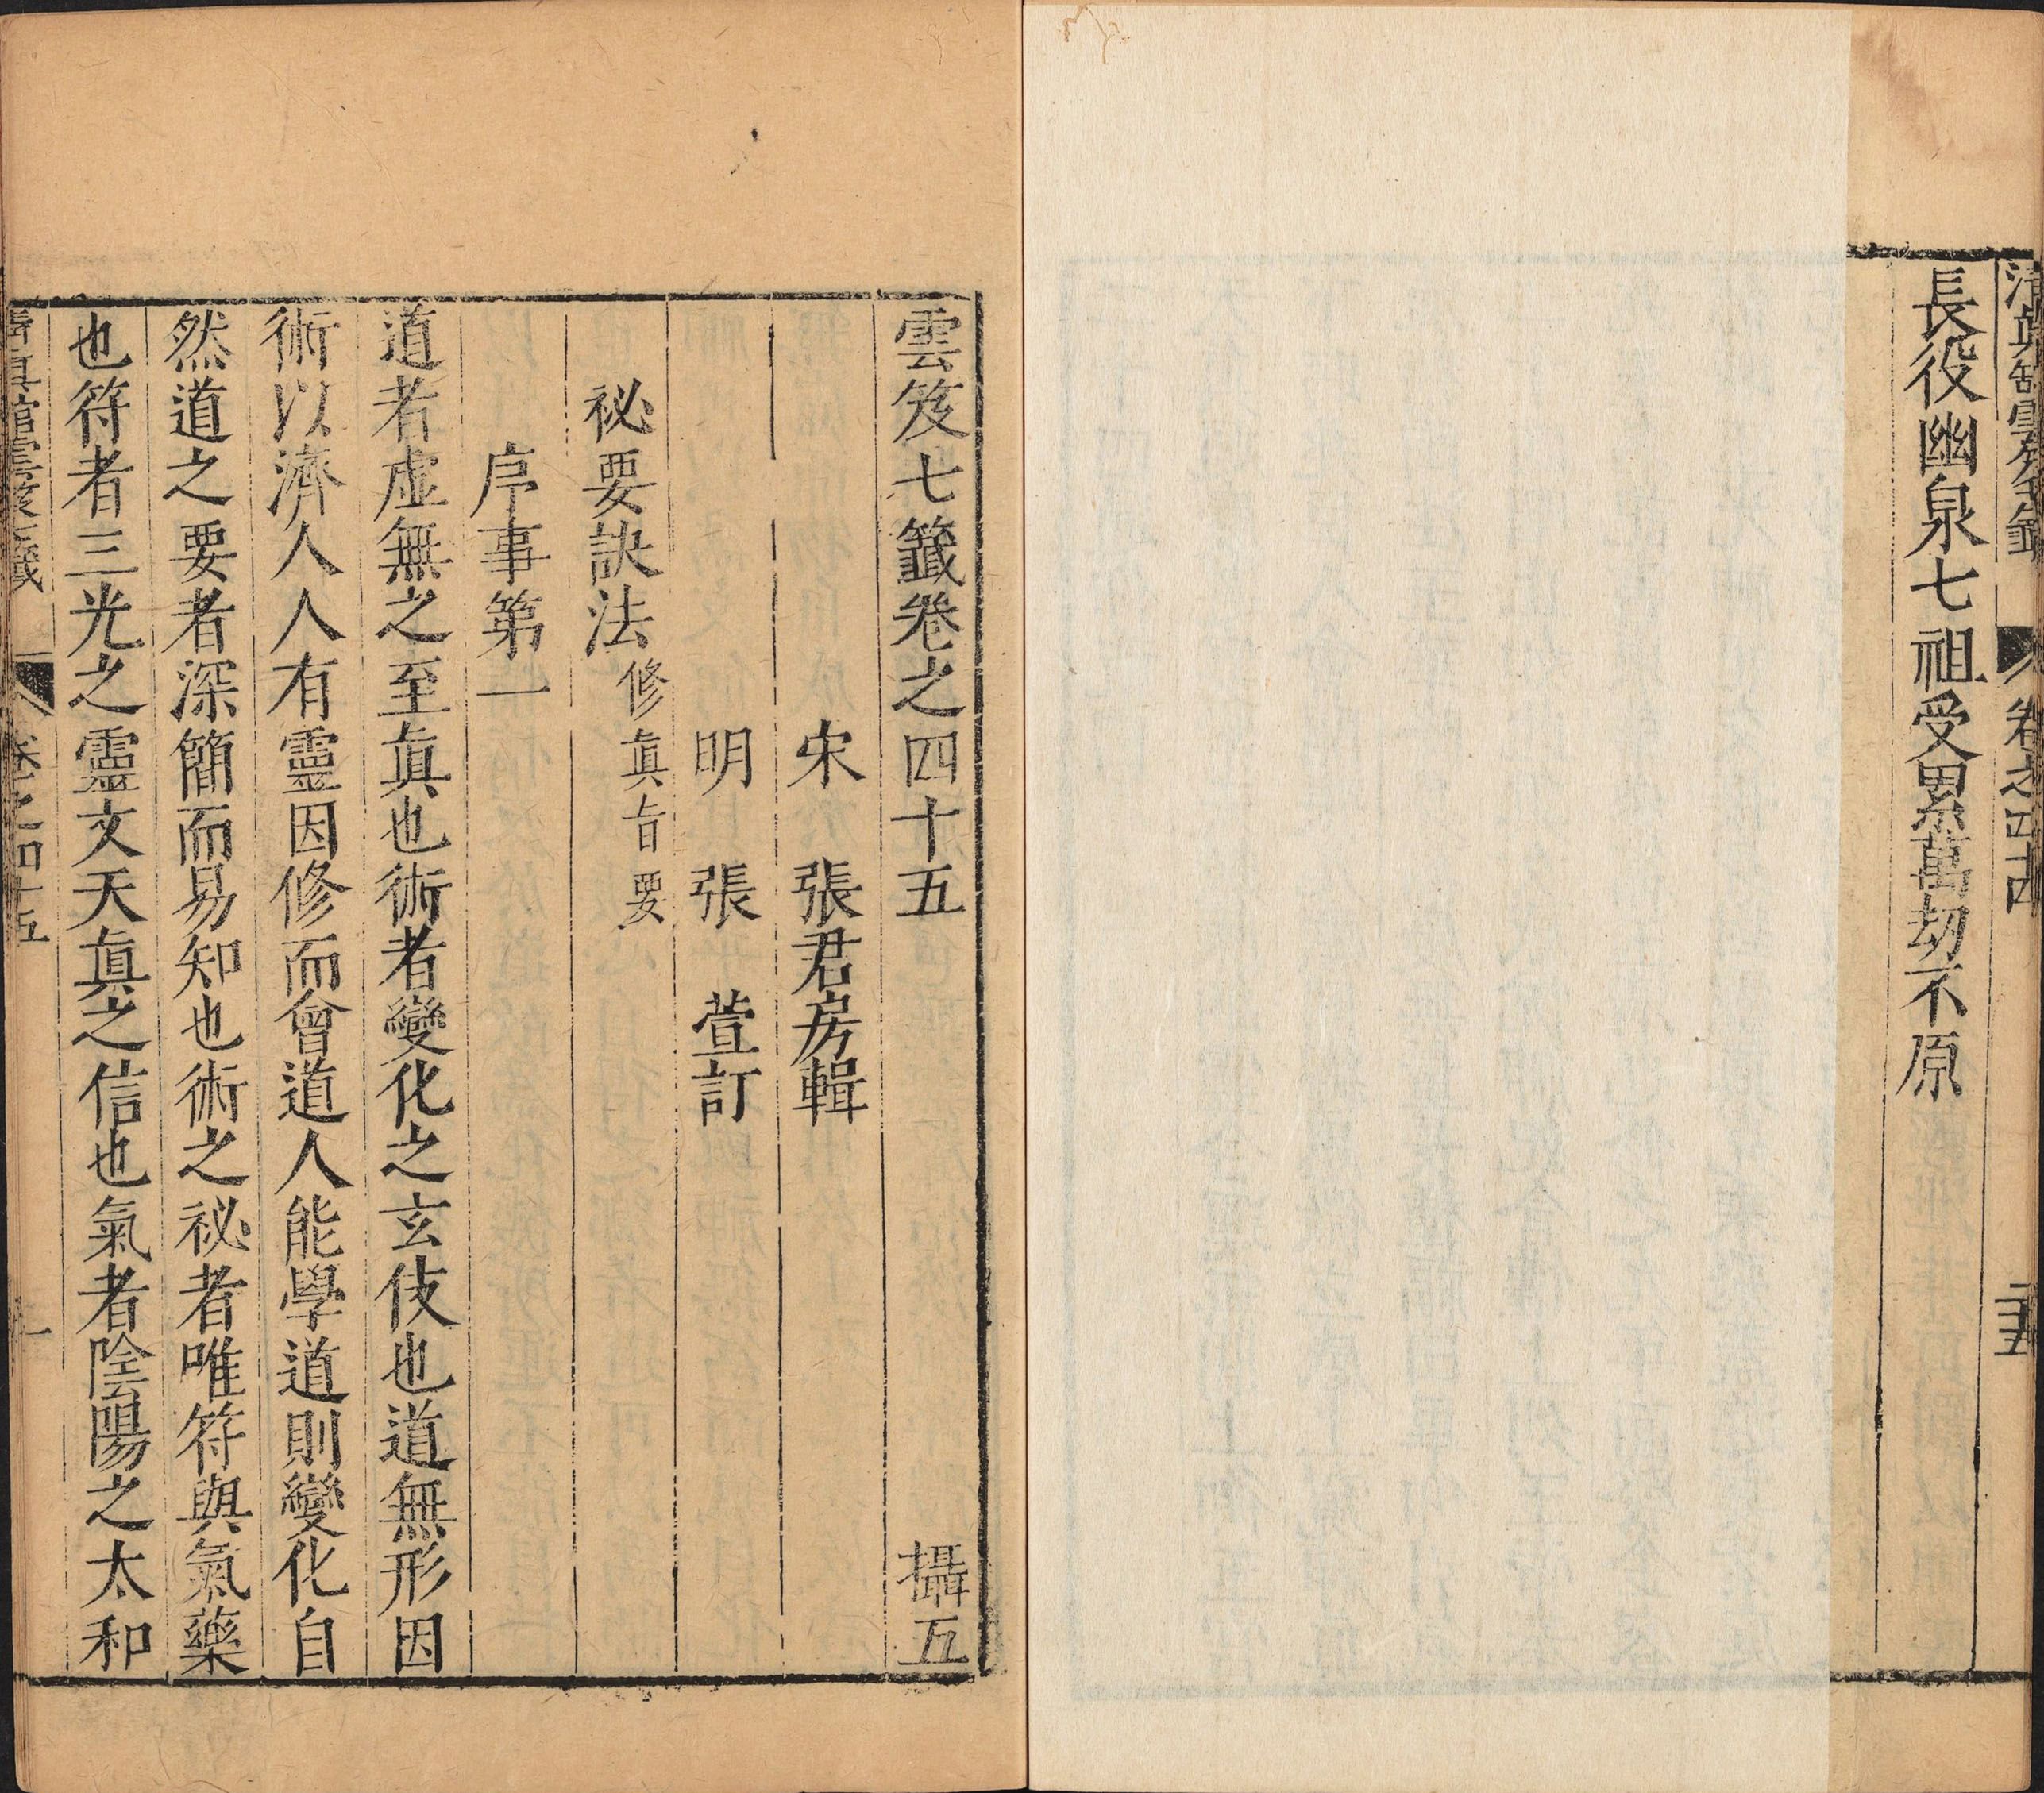 清眞館雲笈七籤 卷之四十四 二十五
長役幽泉七祖受累萬劫不原
雲笈七籤卷之四十五 攝五
宋 張君房輯
明 張 萱訂
祕要訣法修眞旨要
序事第一
道者虛無之至眞也術者變化之玄伎也道無形因
術以濟人人有靈因修而會道人能學道則變化自
然道之要者深簡而易知也術之祕者唯符與氣藥
也符者三光之靈文天眞之信也氣者陰陽之太和
清眞館雲笈七籤 卷之四十五 一